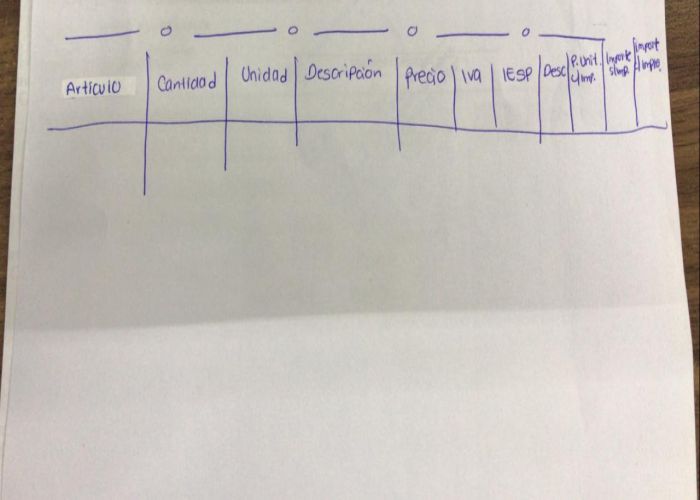 Artículo Cantidad Unidad Descripción Precio IVA IESP Desc P. Unit. c/Imp. Importe s/Imp. Import c/Impto.